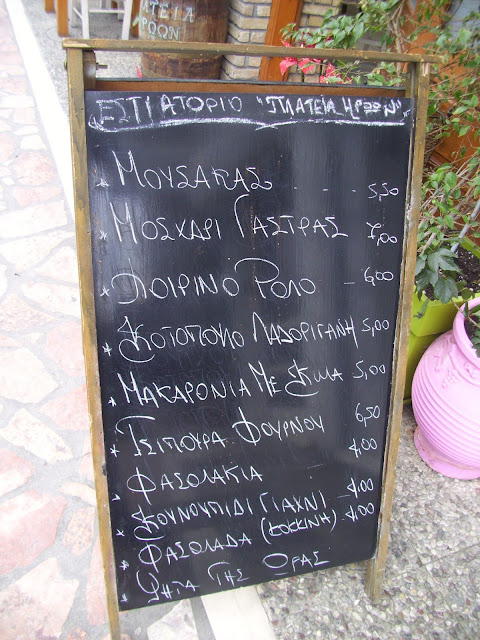 ΑΤΕΙΑ
ΡΩΩΝ
ΕΣΤΙΑΤΟΡΙΟ "ΠΛΑΤΕΙΑ ΗΡΩΩΝ"
* ΜΟΥΣΑΚΑΣ . . . . 5,50
* ΜΟΣΧΑΡΙ ΓΑΣΤΡΑΣ 7,00
* ΧΟΙΡΙΝΟ ΡΟΛΟ - 6,00
* ΚΟΤΟΠΟΥΛΟ ΛΑΔΟΡΙΓΑΝΗ 5,00
* ΜΑΚΑΡΟΝΙΑ ΜΕ ΚΙΜΑ 5,00
* ΤΣΙΠΟΥΡΑ ΦΟΥΡΝΟΥ 6,50
* ΦΑΣΟΛΑΚΙΑ 4,00
* ΚΟΥΝΟΥΠΙΔΙ ΓΙΑΧΝΙ - 4,00
* ΦΑΣΟΛΑΔΑ (ΚΟΚΚΙΝΗ) - 4,00
* ΨΗΤΑ ΤΗΣ ΩΡΑΣ